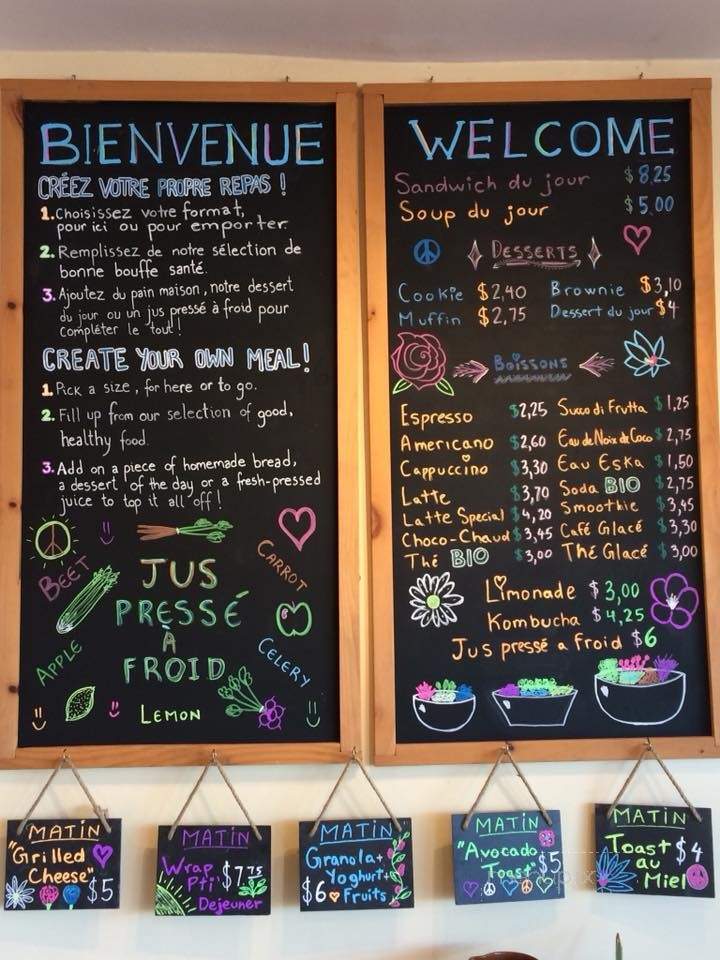 BIENVENUE
CRÉEZ VOTRE PROPRE REPAS !
1. Choisissez votre format,
pour ici ou pour emporter.
2. Remplissez de notre sélection de
bonne bouffe santé.
3. Ajoutez du pain maison, notre dessert
du jour ou un jus pressé à froid pour
compléter le tout !
CREATE YOUR OWN MEAL !
1. Pick a size, for here or to go.
2. Fill up from our selection of good,
healthy food.
3. Add on a piece of homemade bread,
a dessert of the day or a fresh-pressed
juice to top it all off !
BEET
CARROT
JUS
PRESSÉ
À
FROID
APPLE
CELERY
LEMON
WELCOME
Sandwich du jour $8.25
Soup du jour $5.00
DESSERTS
Cookie $2,40 Brownie $3,10
Muffin $2,75 Dessert du jour $4
BOISSONS
Espresso $2,25 Succo di Frutta $1,25
Americano $2,60 Eau de Noix de Coco $2,75
Cappuccino $3,30 Eau Eska $1,50
Latte $3,70 Soda BIO $2,75
Latte Special $4,20 Smoothie $3,45
Choco-Chaud $3,45 Café Glacé $3,30
Thé BIO $3,00 Thé Glacé $3,00
Limonade $3,00
Kombucha $4,25
Jus pressé a froid $6
MATIN
"Grilled
Cheese" $5
MATIN
Wrap $7.75
Pti'
Dejeuner
MATIN
Granola+
Yoghurt+
$6 Fruits
MATIN
"Avocado
Toast" $5
MATIN
Toast $4
au
Miel